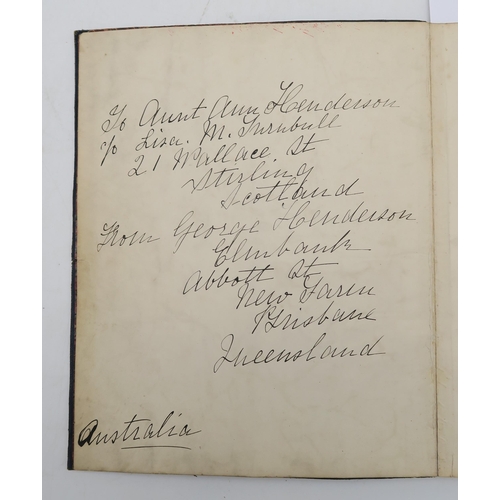 To Aunt Ann Henderson
c/o Lisa. M. Turnbull
21 Wallace St
Stirling
Scotland
From George Henderson
Elmbank
Abbott St
New Farm
Brisbane
Queensland
Australia